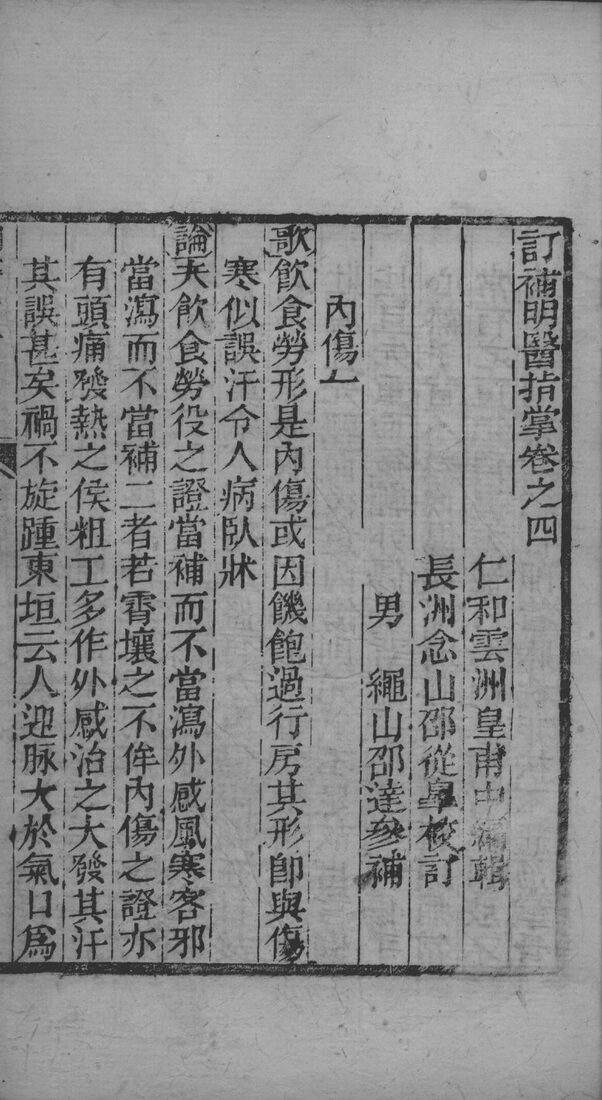 訂補明醫指掌卷之四
仁和雲洲皇甫中編輯
長洲念山邵從皋校訂
男 繩山邵達參補
內傷一
歌飲食勞形是內傷或因饑飽過行房其形卽與傷
寒似誤汗令人病臥牀
論夫飲食勞役之證當補而不當瀉外感風寒客邪
當瀉而不當補二者若霄壤之不侔內傷之證亦
有頭痛發熱之侯粗工多作外感治之大發其汗
其誤甚矣禍不旋踵東垣云人迎脉大於氣口爲